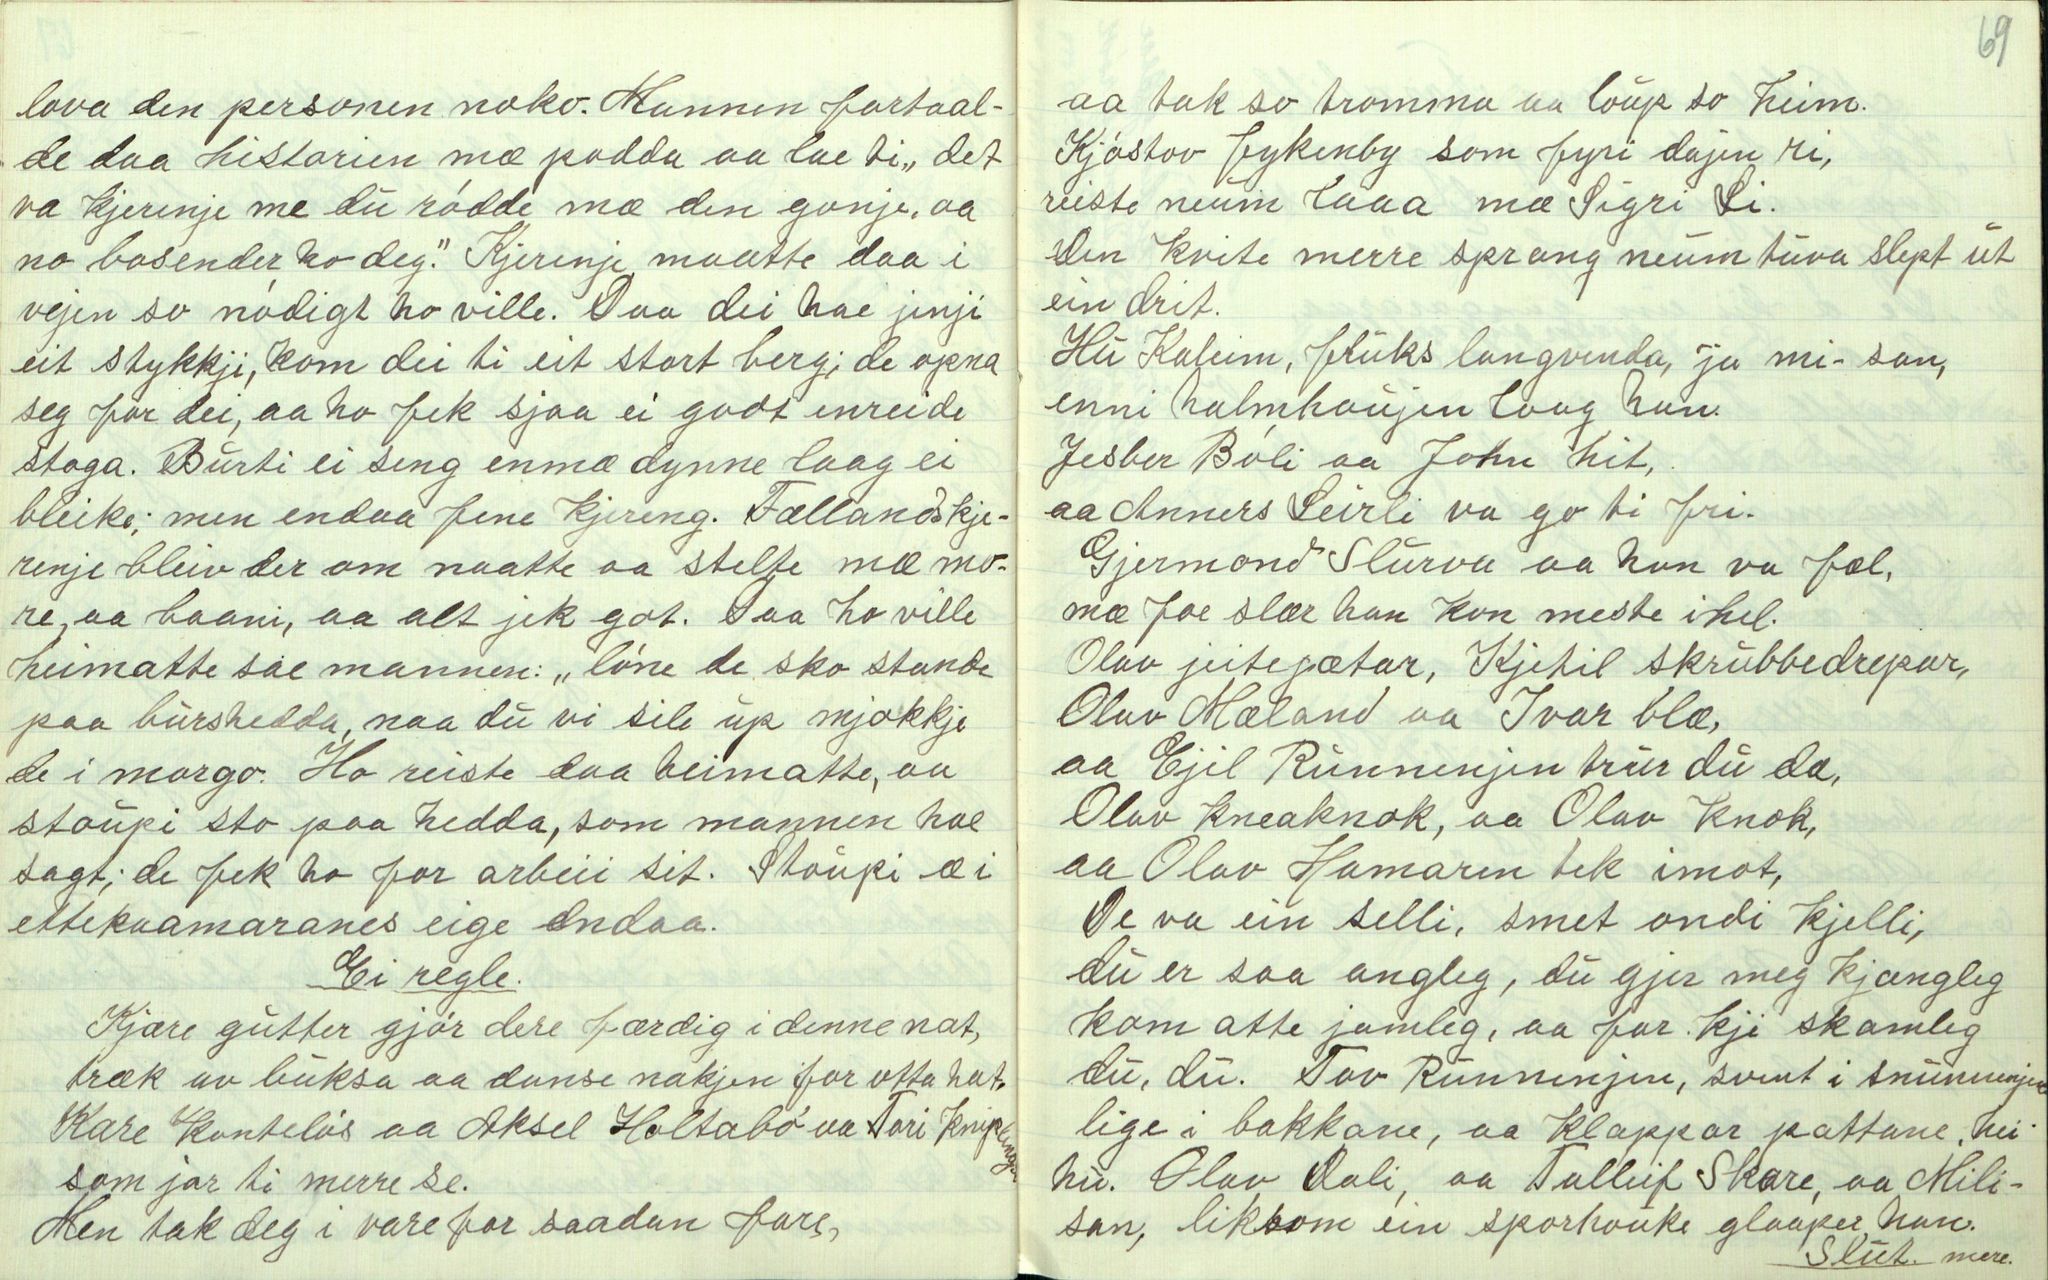 lova den personen noko. Mannen fortaal-
de daa historien mæ padda aa lae ti „det
va kjerenje me du rödde mæ den gonje, aa
no bosender ho deg." Kjerenje maatte daa i
vejen so nödigt ho ville. Daa dei hae jenji
eit stykkji, kom dei ti eit stort berg; de opna
seg for dei, aa ho fek sjaa ei godt enreide
stoga. Burti ei seng enmæ dynne laag ei
bleike; men endaa fene kjereng. Fællandskje-
renje bleiv der om naatte aa stelte mæ mo-
re, aa baani, aa alt jek got. Daa ho ville
heimatte sae mannen: „löne de sko stande
paa burshedda, naa du vi sile up mjøkkje
de i morgo. Ho reiste daa heimatte, aa
stoupi sto paa hedda, som mannen hae
sagt; de fek ho for arbeii sit. Stoupi æ i
ettekaamaranes eige endaa.
Ei regle.
Kjære gutter gjör dere færdig i denne nat,
træk av buksa aa danse nakjen for otta hat.
Kare Konteløs aa Aksel Holtabö aa Tori Kniplingje
som jor ti merre se.
Men tak deg i vare for saadan fare,
69
aa tak so tromma aa loup so heim.
Kjöstov fykenby som fyri dajen ri,
reiste neum laaa mæ Sigri Li.
Den kvite merre sprang neum tuva slept ut
ein drit.
Hu Kaleim, fruks langvenda, ja mi-san,
enni halmhaujen laag han.
Jesber Böli aa John hit,
aa Anners Leirli va go ti fri.
Gjermond Slurva aa han va fæl,
mæ foe slær han kon meste ihel.
Olav jeitegætar, Kjetil skrubbedrepar,
Olav Mæland aa Ivar blæ,
aa Ejil Runnenjen trur du da,
Olav kneaknok, aa Olav knok,
aa Olav Hamaren tek imot,
De va ein selli, smet ondi kjelli,
du er saa angleg, du gjer meg kjængleg
kom atte jamleg, aa far kji skamleg
du, du. Tov Runnenjen, svent i snunnenjen
lige i bakkane, aa klappar pattane, hei
hu. Olav Dali, aa Talleif Skare, aa Mili-
san, liksom ein sporhouke glaaper han.
Slut. mere.